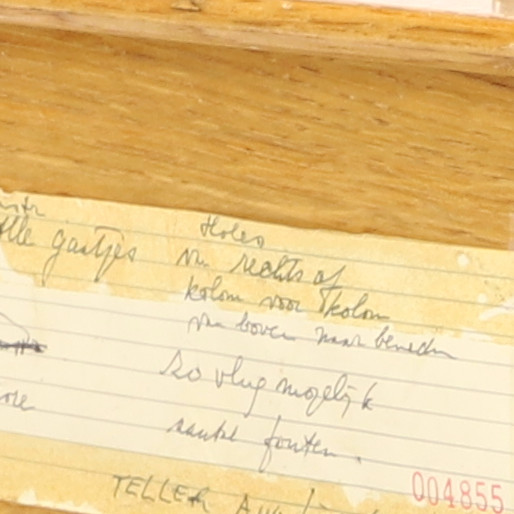 Holes
gaatjes van rechts af
kolom voor kolom
van boven naar beneden
zo vlug mogelijk
aantal fouten.
TELLER
004855